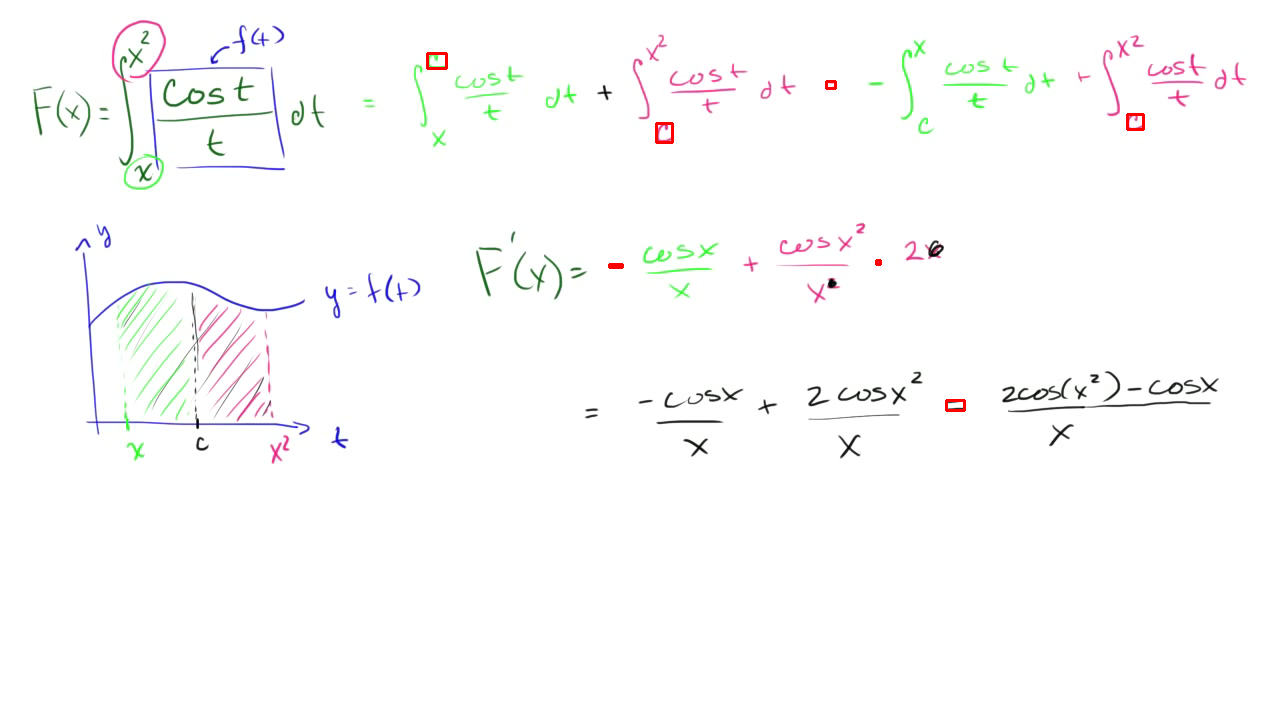 F(x) = ∫_x^{x²} cos t / t dt = ∫_x cos t / t dt + ∫^{x²} cos t / t dt - ∫_c^x cos t / t dt + ∫^{x²} cos t / t dt
f(t)
F'(x) = - cos x / x + cos x² / x · 2
y
y = f(t)
= -cos x / x + 2 cos x² / x 2cos(x²) - cos x / x
x c x² t